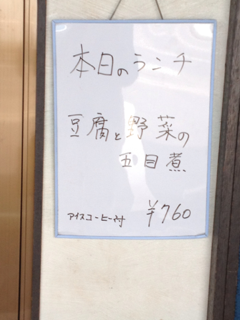 本日のランチ
豆腐と野菜の
五目煮
アイスコーヒー付
¥760